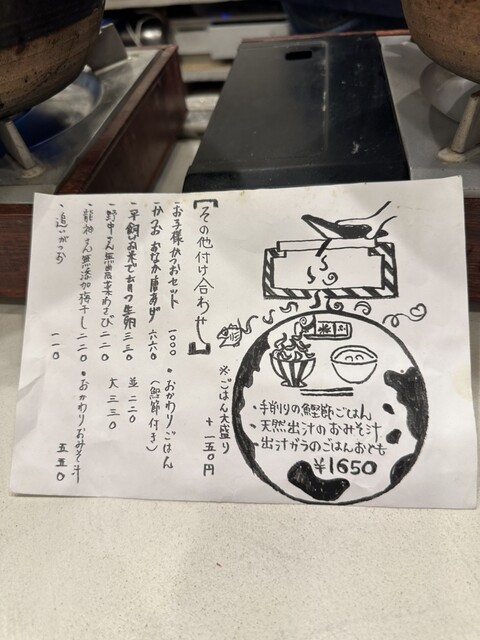 ・手削りの鰹節ごはん
・天然出汁のおみそ汁
・出汁ガラのごはんおとも
¥1650
※ごはん大盛り
+一五〇円
【その他付け合わせ】
・お子様かつおセット 一〇〇〇
・かつおおなか唐あげ 六六〇
・平飼いお米で育つ生卵 三三〇
・野中さん無農薬わさび 二二〇
・龍神さん無添加梅干し 二二〇
・追いがつお 一一〇
・おかわりごはん
(鰹節付き)
並 二二〇
大 三三〇
・おかわりおみそ汁
五五〇